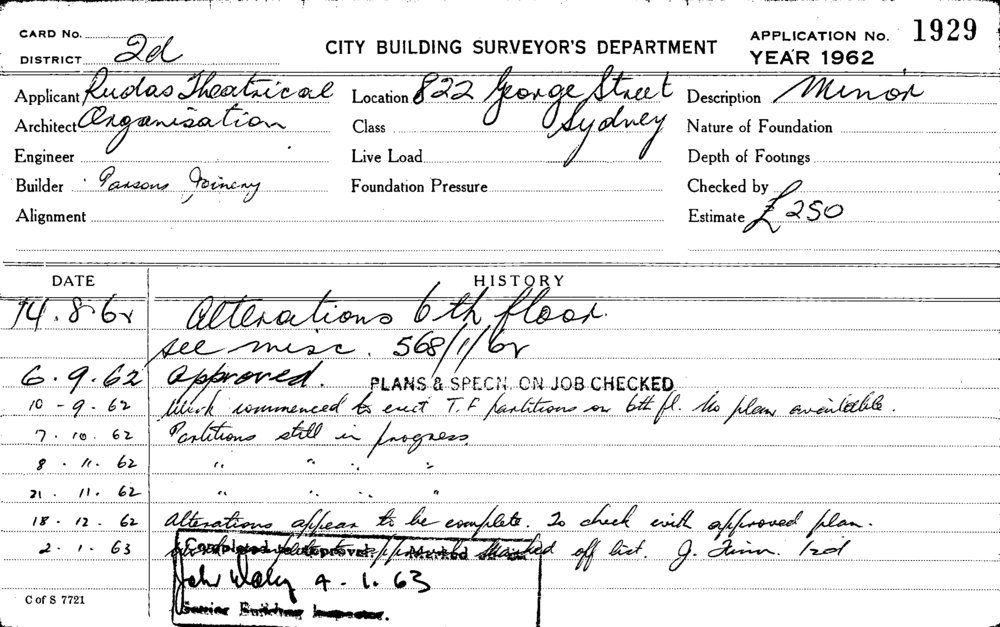 CARD No.
DISTRICT 2d
CITY BUILDING SURVEYOR'S DEPARTMENT
APPLICATION No. 1929
YEAR 1962
Applicant Rudas Theatrical
Architect Organisation
Engineer
Builder Parsons Joinery
Alignment
Location 822 George Street
Class Sydney
Live Load
Foundation Pressure
Description Minor
Nature of Foundation
Depth of Footings
Checked by
Estimate £250
DATE HISTORY
14.8.62 Alterations 6th floor.
see misc. 568/1/62
6.9.62 Approved. PLANS & SPECN. ON JOB CHECKED
10-9.62 Work commenced to erect T.F partitions on 6th fl. No plan available.
7.10.62 Partitions still in progress
8.11.62 " " " "
21.11.62 " " " "
18.12.62 Alterations appear to be complete. To check with approved plan.
2.1.63 marked off list. J. Finn. 12d
Completed Approval. Marked
4-1.63
Senior Building Inspector.
C of S 7721